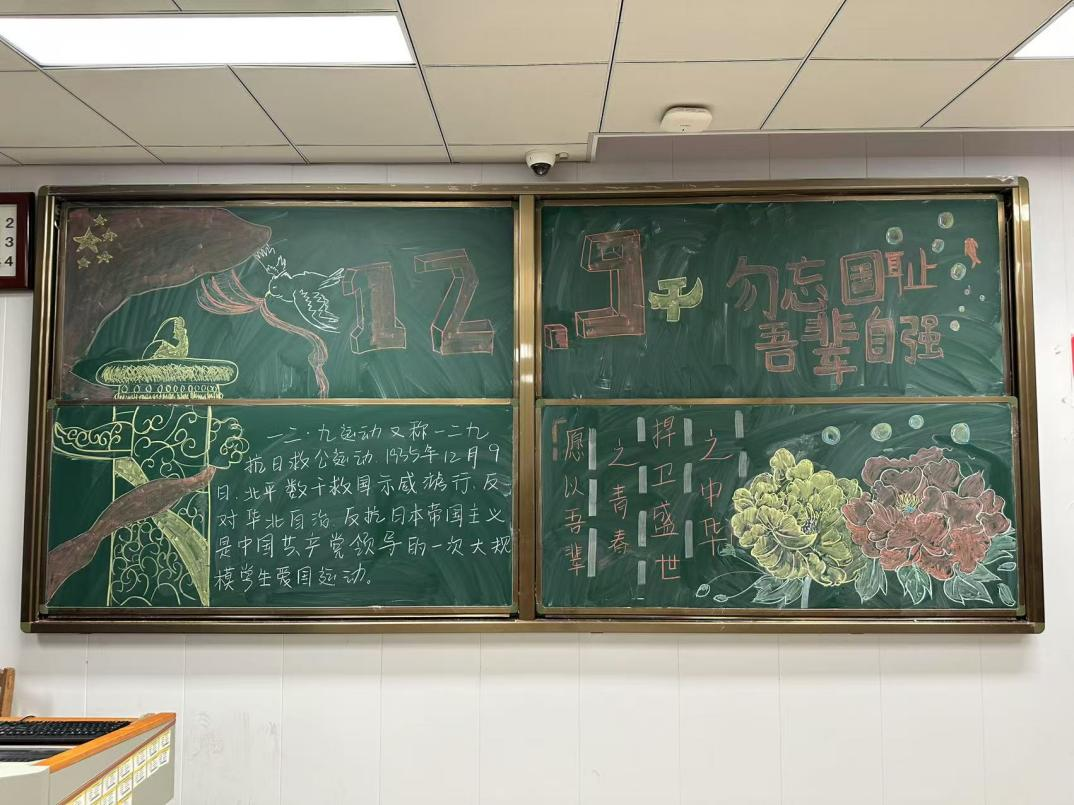 12
.9
勿忘国耻
吾辈自强
一二·九运动又称一二九
抗日救公运动.1935年12月9
日.北平数千救国示威游行.反
对华北自治.反抗日本帝国主义
是中国共产党领导的一次大规
模学生爱国运动。
愿以吾辈
之青春
捍卫盛世
之中华
2
3
4